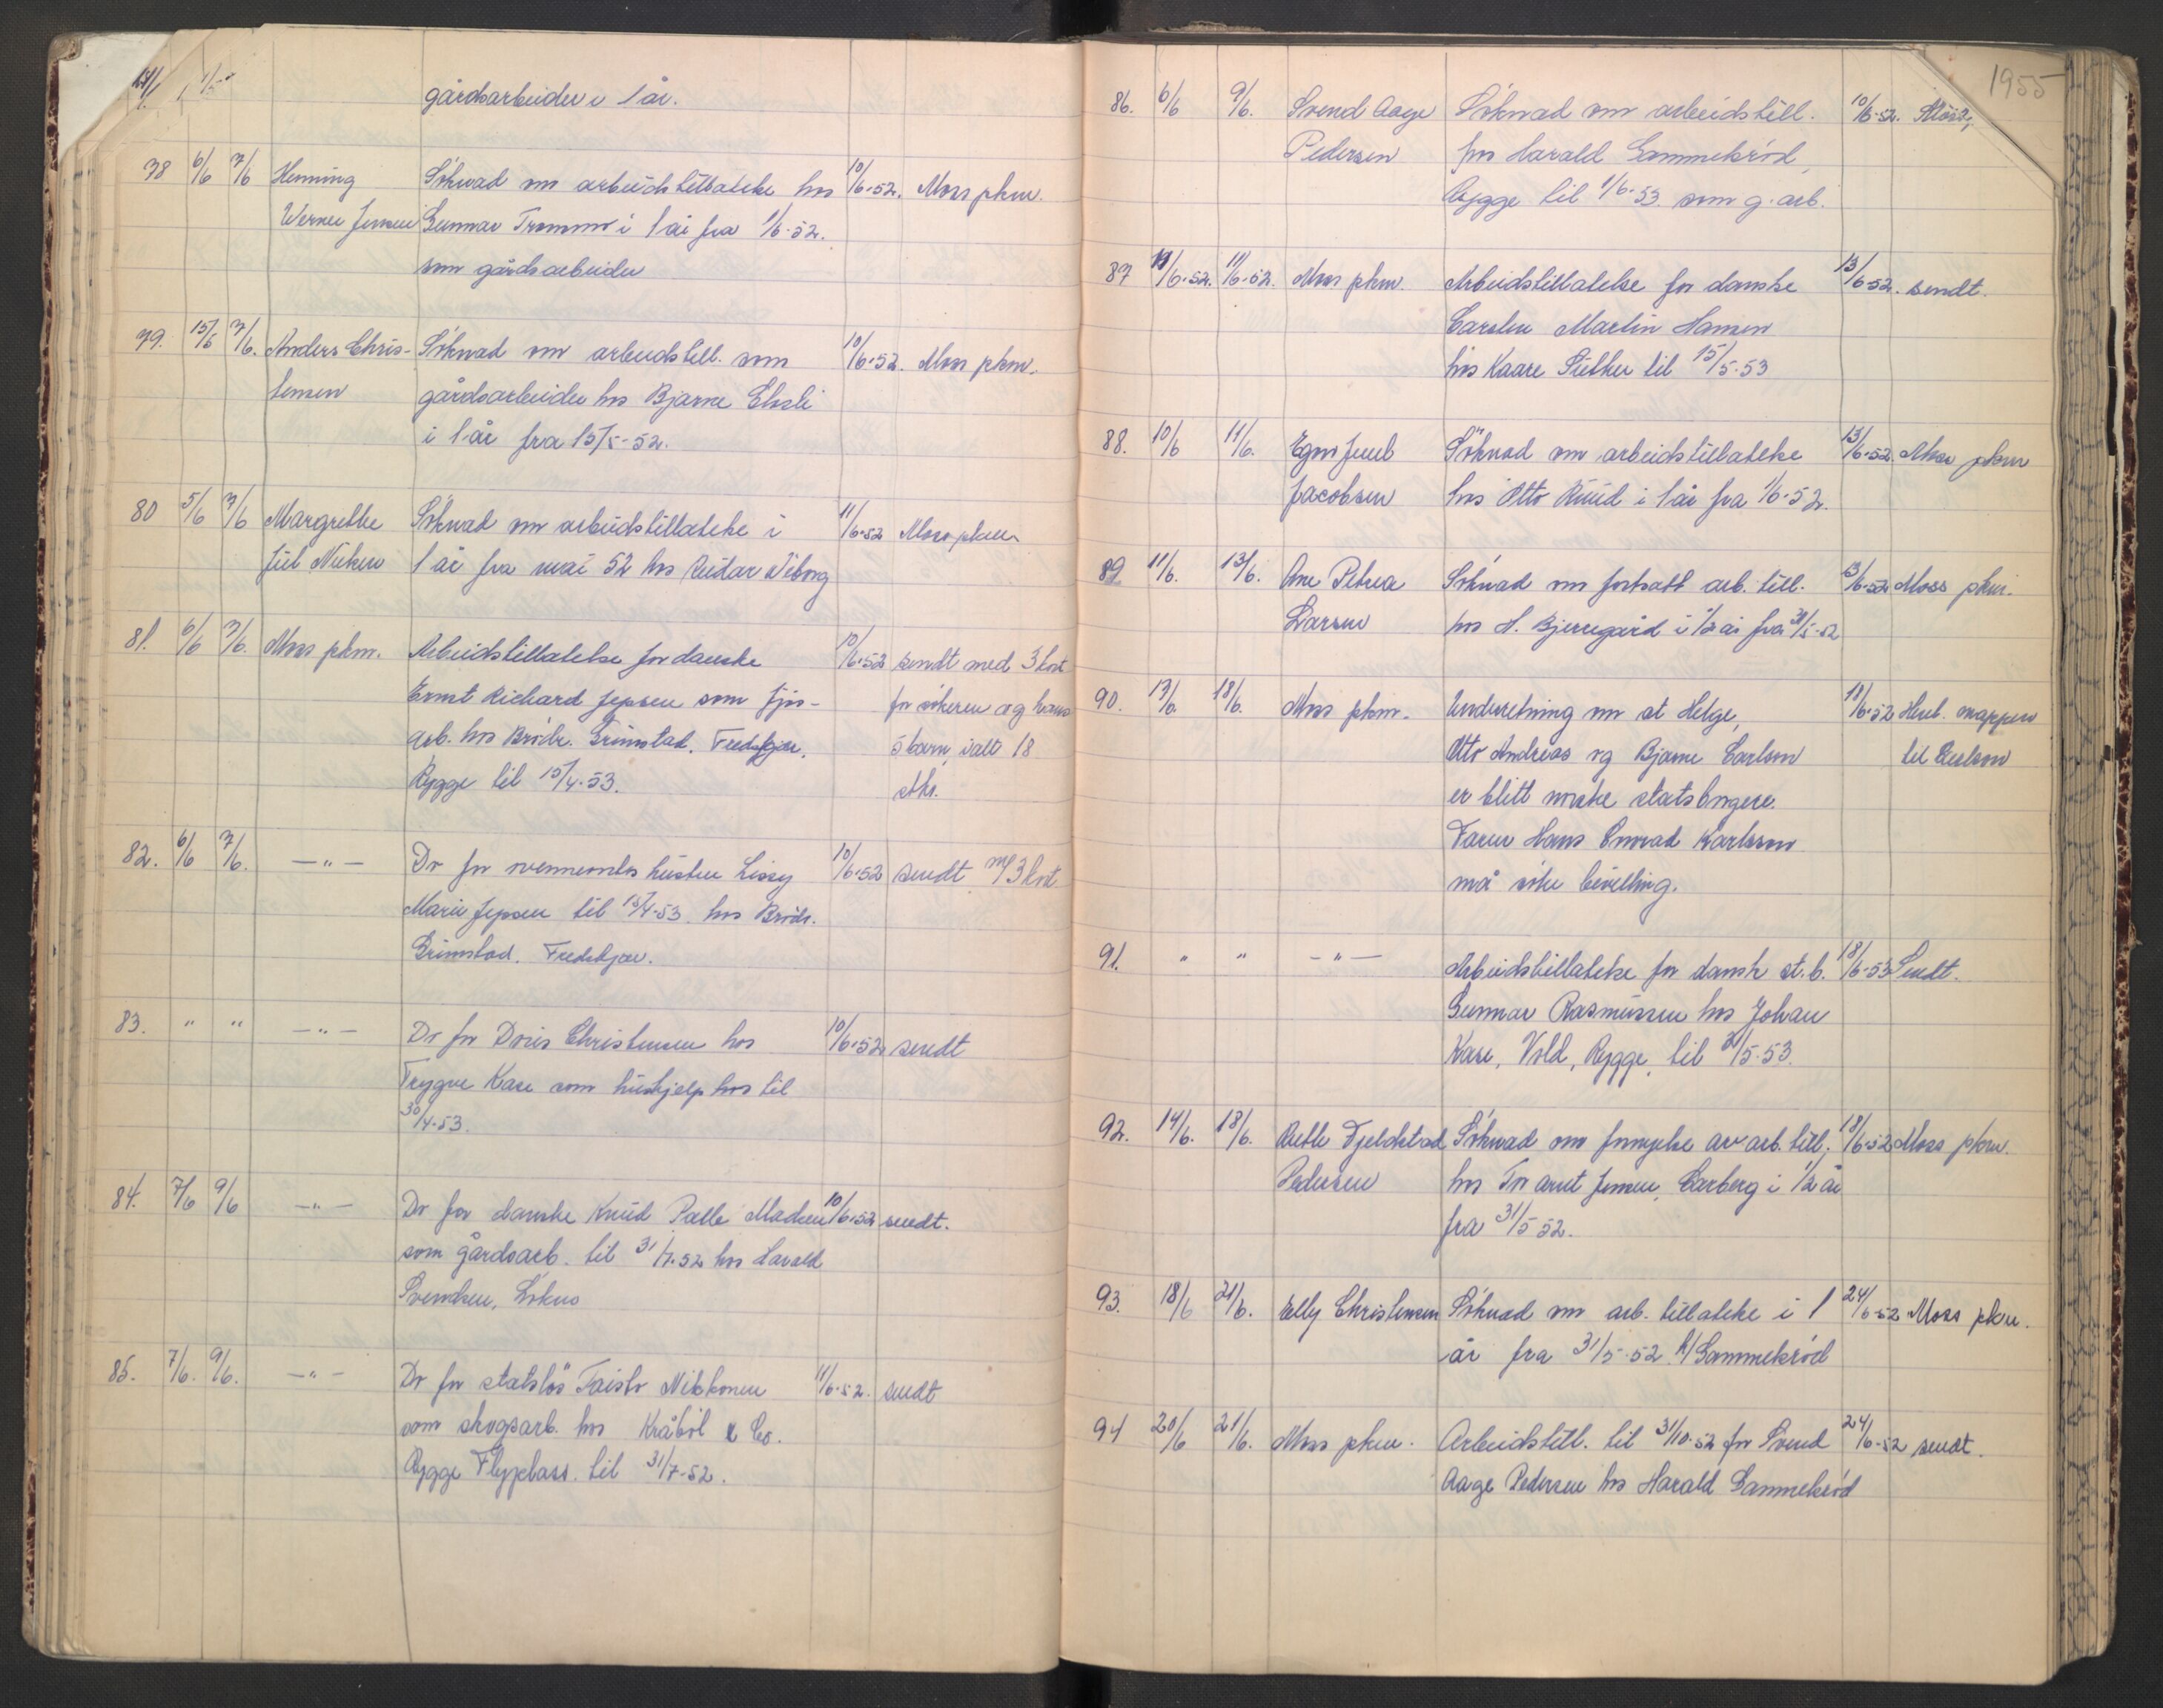 gårdsarbeider i 1 år.
78 6/6 7/6 Henning Søknad om arbeidstillatelse hos 10/6-52. Moss pkm.
Werner Jensen Gunnar Tromme i 1 år fra 1/6-52.
som gårdsarbeider
79. 15/5 7/6. Anders Chris- Søknad om arbeidstill. som 10/6-52. Moss pkm.
tensen gårdsarbeider hos Bjarne Eksli
i 1 år fra 15/5-52.
80 5/6 7/6 Margrethe Søknad om arbeidstillatelse i 11/6-52 Moss pkm
Juul Nielsen 1 år fra mai 52 hos Reidar Wiborg
81. 6/6 7/6. Moss pkm. Arbeidstillatelse for danske 10/6-52 sendt med 3 kort
Ernst Richard Jepsen som fjøs- for søkeren og hans
arb. hos Brødr. Grimstad. Fredskjær, 5 barn, ialt 18
Rygge til 15/4-53. stk.
82. 6/6 7/6. —"— Do for ovennevntes hustru Lissy 10/6-52 sendt m/3 kort
Marie Jepsen til 15/4-53 hos Brødr.
Grimstad. Fredskjær.
83. " " —"— Do for Doris Christensen hos 10/6-52 sendt
Trygve Kase som hushjelp hos til
30/4-53.
84. 7/6 9/6 —"— Do for danske Knud Palle Madsen 10/6-52 sendt.
som gårdsarb. til 31/7-52 hos Harald
Svendsen, Løkus
85. 7/6. 9/6. —"— Do for statsløs Taisto Nikkonen 11/6-52. sendt
som skogsarb. hos Kråbøl & Co.
Rygge Flyplass. til 31/7-52.
1955
86. 6/6 9/6. Svend Aage Søknad om arbeidstill. 10/6-52. Moss,
Pedersen hos Harald Gammelsrød,
Rygge til 1/6-53. som g.arb.
87 11/6-52. 11/6-52. Moss pkm. Arbeidstillatelse for danske 13/6-52. sendt.
Carsten Martin Hansen
hos Kaare Sæther til 15/5-53
88. 10/6 11/6. Egon Juul Søknad om arbeidstillatelse 13/6-52 Moss pkm
Jacobsen hos Otto Ruud i 1 år fra 1/6-52.
89 11/6. 13/6. Ane Petrea Søknad om fortsatt arb. till. 13/6-52 Moss pkm.
Larsen hos H. Bjerregård i 1/2 år fra 31/5-52
90. 13/6. 18/6. Moss pkm. Underretning om at Helge, 18/6-52 Henl. mappen
Otto Andreas og Bjarne Carlson til Carlson
er blitt norske statsborgere.
Faren Hans Conrad Karlsson
må søke bevilling.
91. " " —"— Arbeidstillatelse for dansk st.b. 18/6-53 Sendt.
Gunnar Rasmussen hos Johan
Kase, Vold, Rygge, til 31/5-53.
92. 14/6. 18/6. Rette Fjeldstad Søknad om fornyelse av arb. till. 18/6-52 Moss pkm.
Pedersen hos Tor Arnt Jensen, Carberg i 1/2 år
fra 31/5 52.
93. 18/6 21/6. Elly Christensen Søknad om arb. tillatelse i 1 24/6-52 Moss pkm.
år fra 31/5-52 H/Gammelsrød
94 20/6 21/6. Moss pkm. Arbeidstill. til 31/10-52 for Svend 24/6-52 sendt.
Aage Pedersen hos Harald Gammelsrød